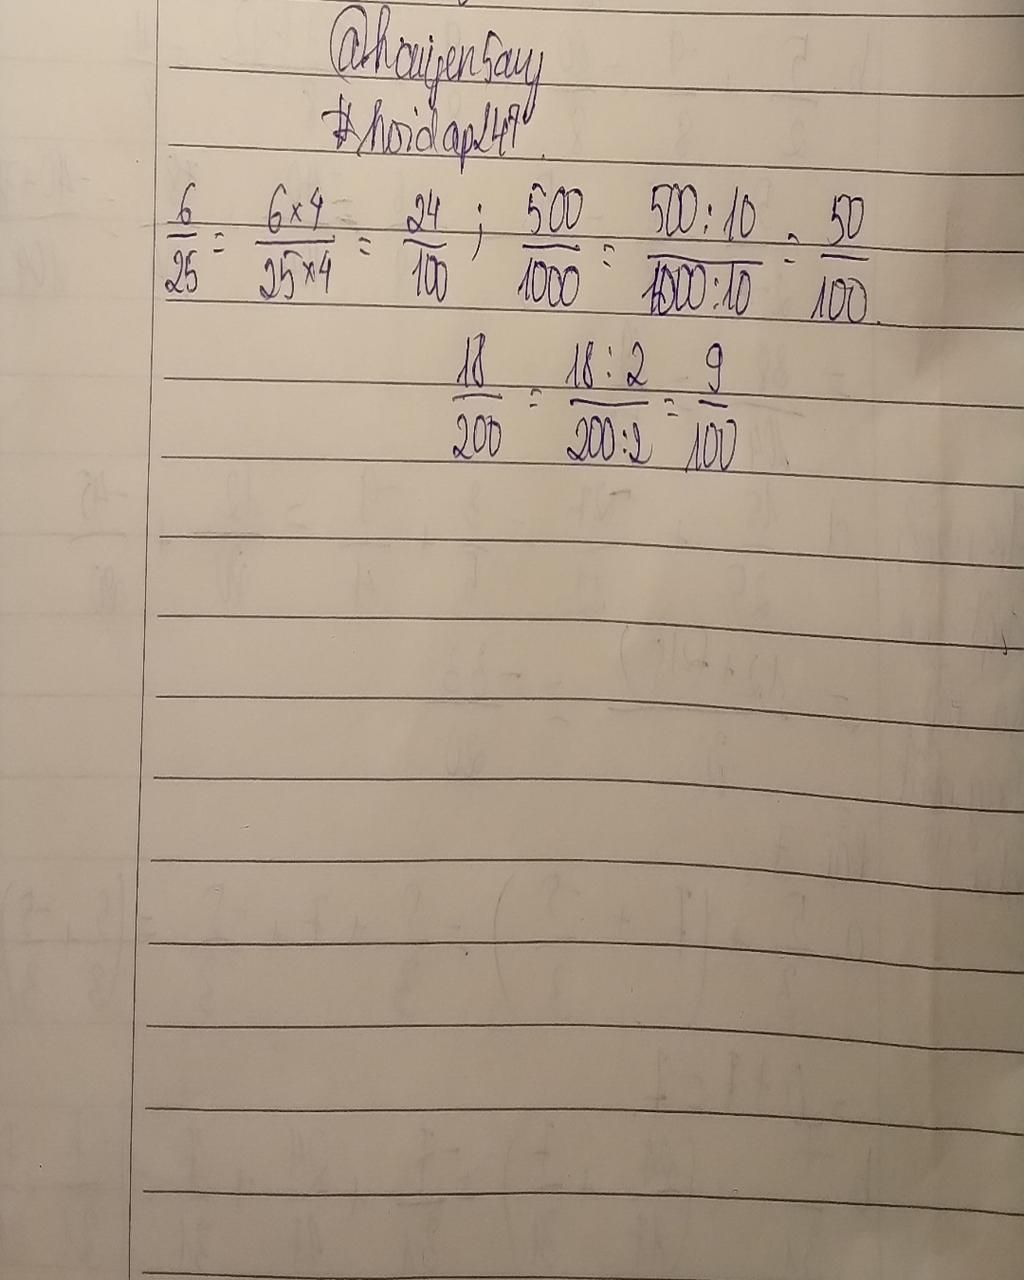 @haiyen5auy
#hoidap247
6/25 = 6×4/25×4 = 24/100 ; 500/1000 = 500:10/1000:10 = 50/100.
18/200 = 18:2/200:2 = 9/100